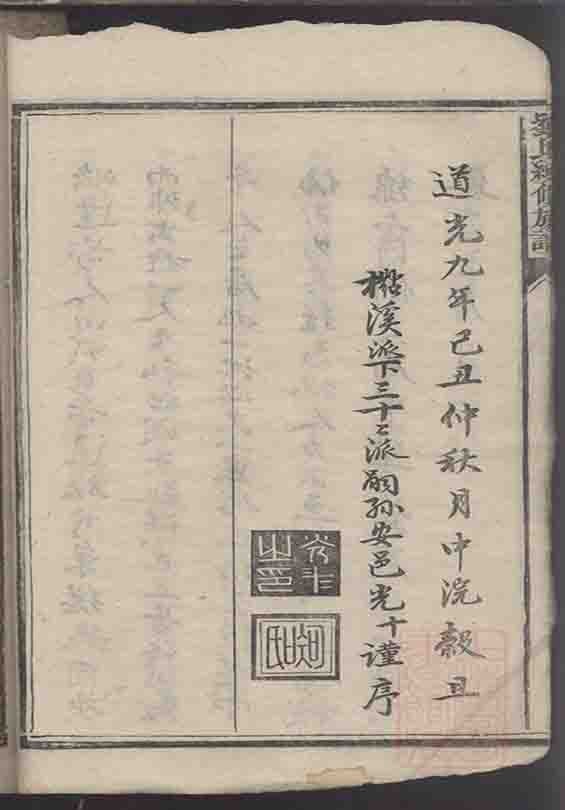 道光九年己丑仲秋月中浣穀旦
溪派下三十二派嗣孫安邑光十謹序
氏續修族譜
之印